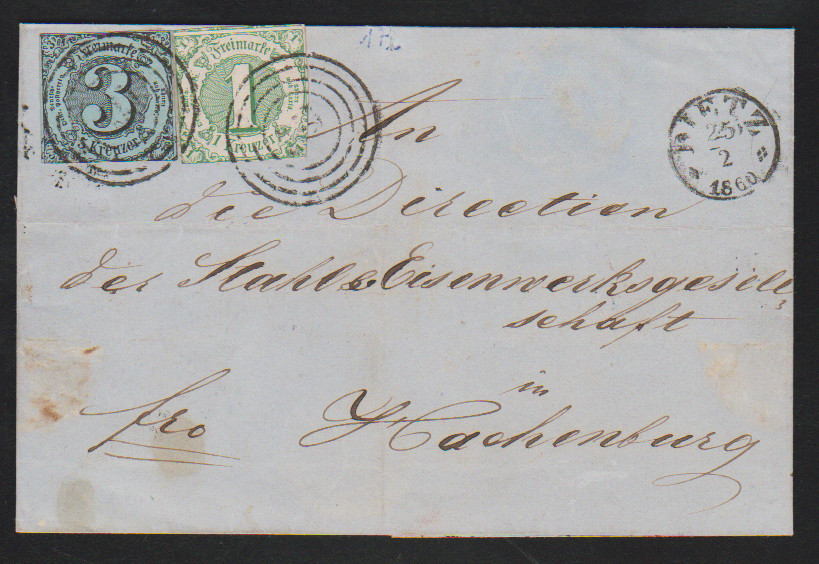 Freimarke
3
3 Kreuzer
Freimarke
1
1 Kreuzer
DIETZ
25
2
1860
An
die Direction
der Stahl & Eisenwerksgesell
schaft
in
fro Hachenburg